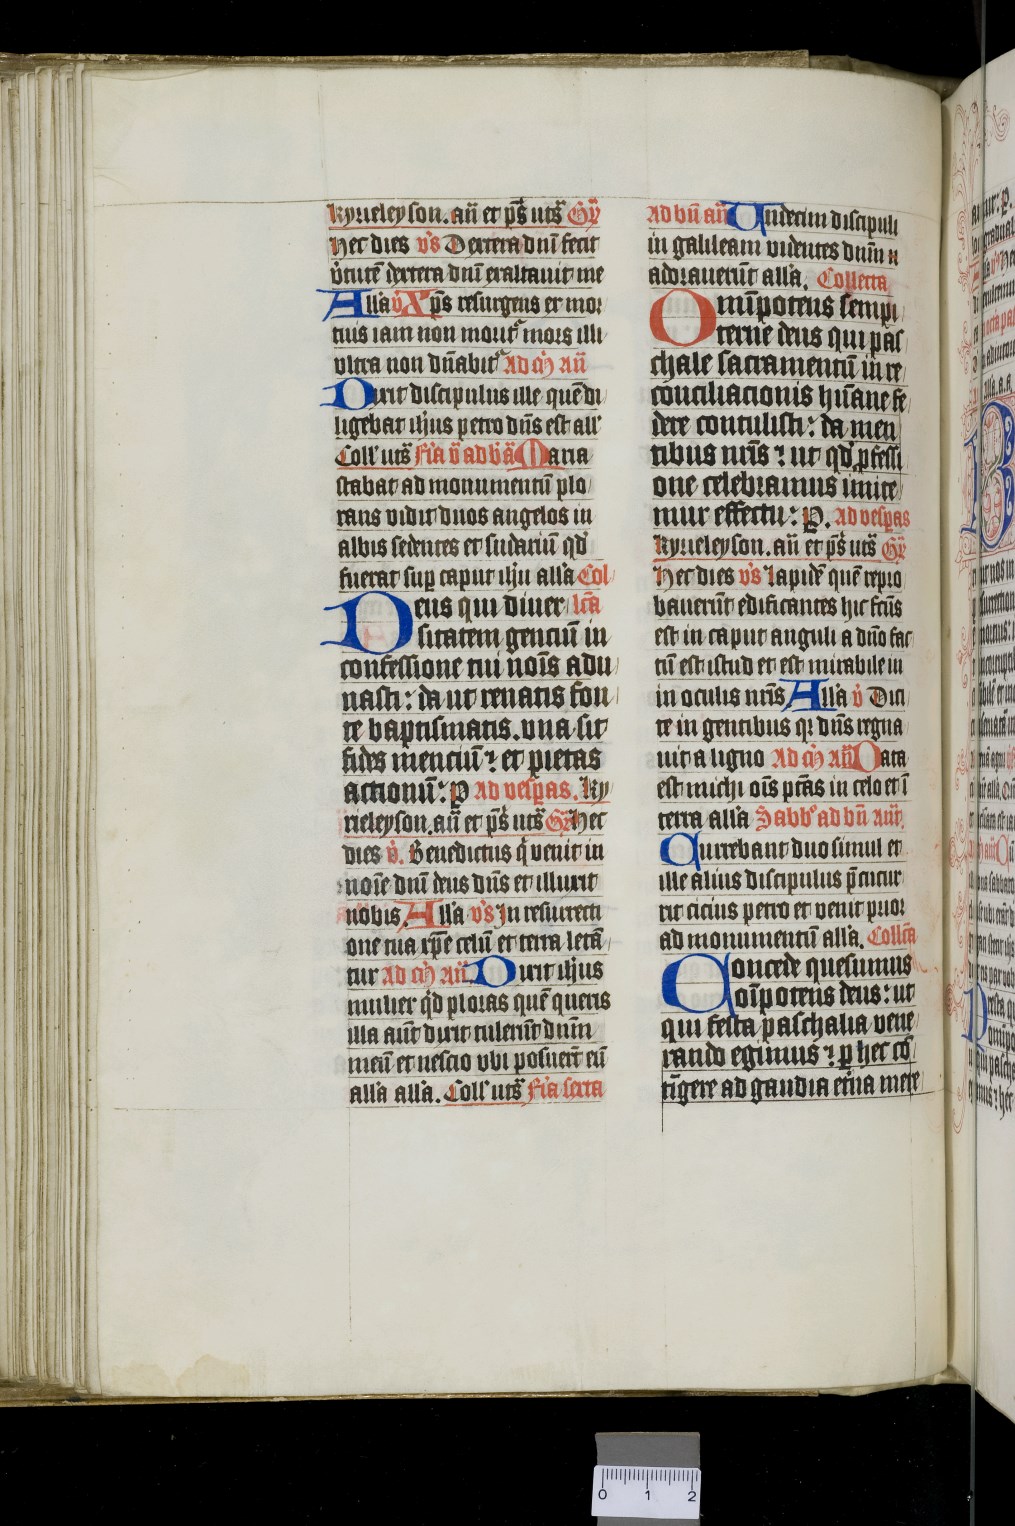 kyrieleyson. añ et ps̄ uts̄ Gr̄
Hec dies vs̄ Dextera dnī fecit
v̇tutē dextera dnī exaltauit me
All'a v̇ Xp̄s resurgens ex mor
tuis iam non morit᷑ mors illi
ultra non dn̄abit᷑ Ad m̄ añ
Dixit discipulus ille quē di
ligebat ih̄us petro dn̄s est all'
Coll' uts̄ Fīa v̄ ad b̄ ā Maria
stabat ad monumentū plo
rans vidit duos angelos in
albis sedentes et sudariū qd̄
fuerat sup caput ih̄u all'a Col
Deus qui diuer lc̄a
sitatem genciū in
confessione tui noīs adu
nasti: da ut renatis fon
te baptismatis. vna sit
fides menciū: et pietas
actionū: P Ad vesp̄as. ky
rieleyson. añ et ps̄ uts̄ Gr̄ Hec
dies v̇. Benedictus q̇ venit in
noīe dnī deus dn̄s et illuxit
nobis. All'a vs̄ In resurrecti
one tua xp̄e celū et terra letā
tur Ad m̄ añ. Dixit ih̄us
mulier qd̄ ploras quē queris
illa aūt dixit tulerūt dnm̄
meū et nescio vbi posuerūt eū
all'a all'a. Coll' uts̄ Fīa sexta
Ad bn̄ añ Undecim discipuli
in galileam videntes dnm̄
adorauerūt all'a. Collecta
Omīpotens sempi
terne deus qui pas
chale sacramentū in re
conciliacionis hūane fe
dere contulisti: da men
tibus nr̄is: ut qd̄ p̄fessi
one celebramus imite
mur effectu: P. Ad vesp̄as
kyrieleyson. añ et ps̄ uts̄ Gr̄
Hec dies vs̄ Lapidē quē repro
bauerūt edificantes hic fc̄us
est in caput anguli a dn̄o fac
tū est istud et est mirabile in
in oculis nr̄is All'a v̇ Dici
te in gentibus qr dn̄s regna
uit a ligno Ad m̄ añ Data
est michi oīs ptās in celo et ī
terra all'a Sabb'o ad bn̄ añt.
Currebant duo simul et
ille alius discipulus p̄cucur
rit cicius petro et venit prior
ad monumentū all'a. Collc̄a
Concede quesumus
oīpotens deus: ut
qui festa paschalia vene
rando egimus: p hec cō
tīgere ad gaudia et̄na mere